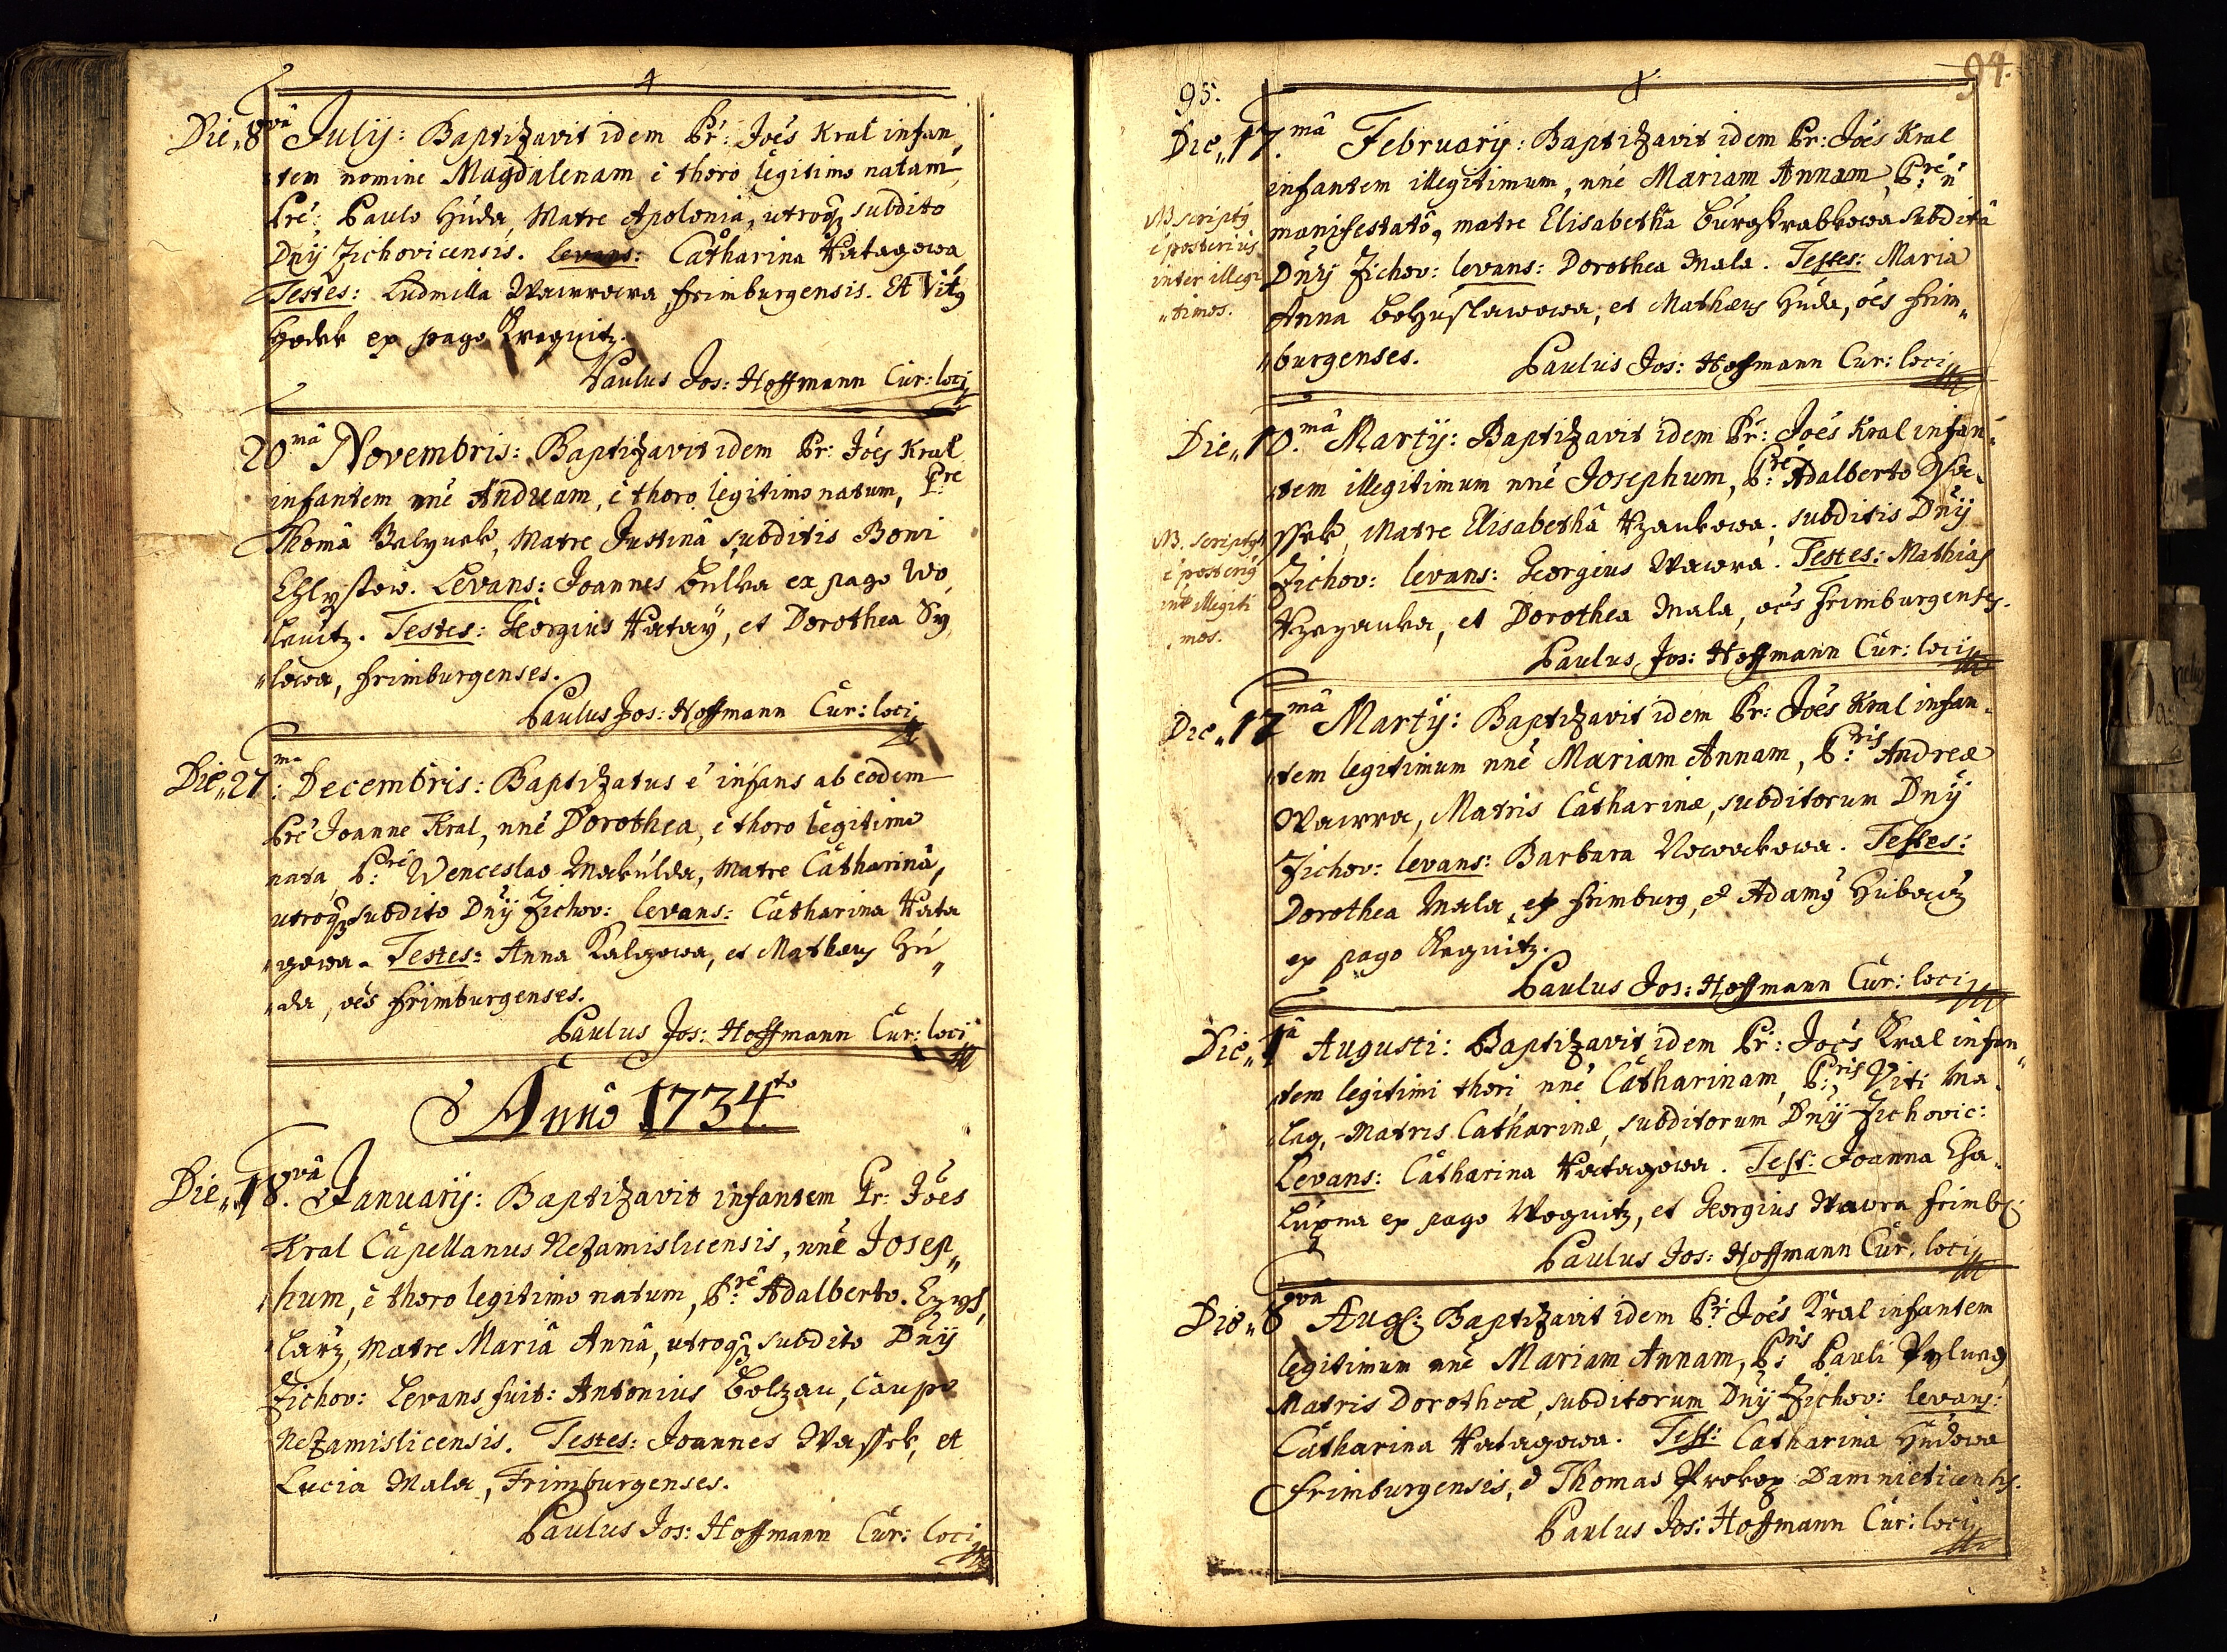 Die„ 8và Julij: Baptizavit idem Pr: Joés Kral infan„
tem nomine Magdalenam è thoro legitimo natam,
Pré: Paulo Húda, Matre Apolonia, utroq; subdito
Dnÿ Zichovicensis. Levans: Catharina Katagowa,
Testes: Ludmilla Wawrowa Frimburgensis. Et Vitq
Hodek ex pago
Paulus Jos: Hoffmann Cur: loci
20mâ Novembris: Baptizavit idem Pr: Joés Kral
infantem nné Andream, è thoro legitimo natum, Pre
Thomâ, Matre Justinâ subditis Boni
Levans: Joannes Bulka ex pago Wo„
Testes: Georgius Kataÿ, et Dorothea Sy„
„lowa, Frimburgenses.
Paulus Jos: Hoffmann Cur: loci
Die„ 27ma: Decembris: Baptizatus é infans ab eodem
Pré Joanne Kral, nné Dorothea, è thoro legitimo
nata, P:ré Wenceslao Makúlda, Matre Catharinâ,
utroq; subdito Dnÿ Zichov: levans: Catharina Kata
„gowa. Testes: Anna, et Mathæus Hú„
„da, oés Frimburgenses.
Paulus Jos: Hoffmann Cur: loci
Annô 1734to
Die„ 18.và Januarij: Baptizavit infantem Pr: Joés
Kral Capellanus Nezamislicensis, nné Josep„
hum, è thoro legitimo natum, P:ré Adalberto
Matre Mariâ Annâ, utroq; subdito Dnÿ
Zichov: Levans fuit: Antonius Bolzau, Caupo
Nezamislicensis. Testes: Joannes Wassek, et
Lucia Mala, Frimburgenses.
Paulus Jos: Hoffmann Cur: loci
94.
95.
Die„ 17.mâ Februarij: Baptizavit idem Pr: Joés Kral
infantem illegitimum, nné Mariam Annam, P:ré ñ
manifestatô, matre Elisabetha Burgkrabkowa subditâ
Dnÿ Zichov: levans: Dorothea Mala. Testes: Maria
Anna Bohuslawowa, et Mathæus Húda, oés Frim„
„burgenses.
Paulus Jos: Hoffmann Cur: loci
NB scriptq
é posterius
inter illegi
„timos.
Die„ 10.mâ Martij: Baptizavit idem Pr: Joés Kral infan„
„tem illegitimum nné Josephum, P:ré Adalberto Wa„
ssek, Matre Elisabethâ, subditis Dnÿ
Zichov: levans: Georgius Wawra. Testes: Mathias
et Dorothea Mala, oés Frimburgenses.
Paulus Jos: Hoffmann Cur: loci
NB. scriptq
é posteriq
int illegiti
mos.
Die„ 17mâ Martij: Baptizavit idem Pr: Joés Kral infan„
„tem legitimum nné Mariam Annam, P:ris Andreæ
Wawra, Matris Catharinæ, subditorum Dnÿ
Zichov: levans: Barbara Nowakowa. Testes:
Dorothea Mala ex Frimburg, et Adamq
ex pago
Paulus Jos: Hoffmann Cur: loci
Die„ 1â Augusti: Baptizavit idem Pr: Joés Kral infan„
„tem legitimi thori, nné Catharinam, P:ris Viti Ma„
Matris Catharinæ, subditorum Dnÿ Zichovic:
Levans: Catharina Katagowa. Test: Joanna Cha„
lúpna ex pago, et Georgius Wawra Frimb:
Paulus Jos: Hoffmann Cur: loci
Die„ 8và Aug: Baptizavit idem Pr: Joés Kral infantem
legitimum nné Mariam Annam, P:ris Pauli
Matris Dorotheæ, subditorum Dnÿ Zichov: levans:
Catharina Katagowa. Test: Catharina Húdowa
Frimburgensis, et Thomas Prokop
Paulus Jos: Hoffmann Cur: loci